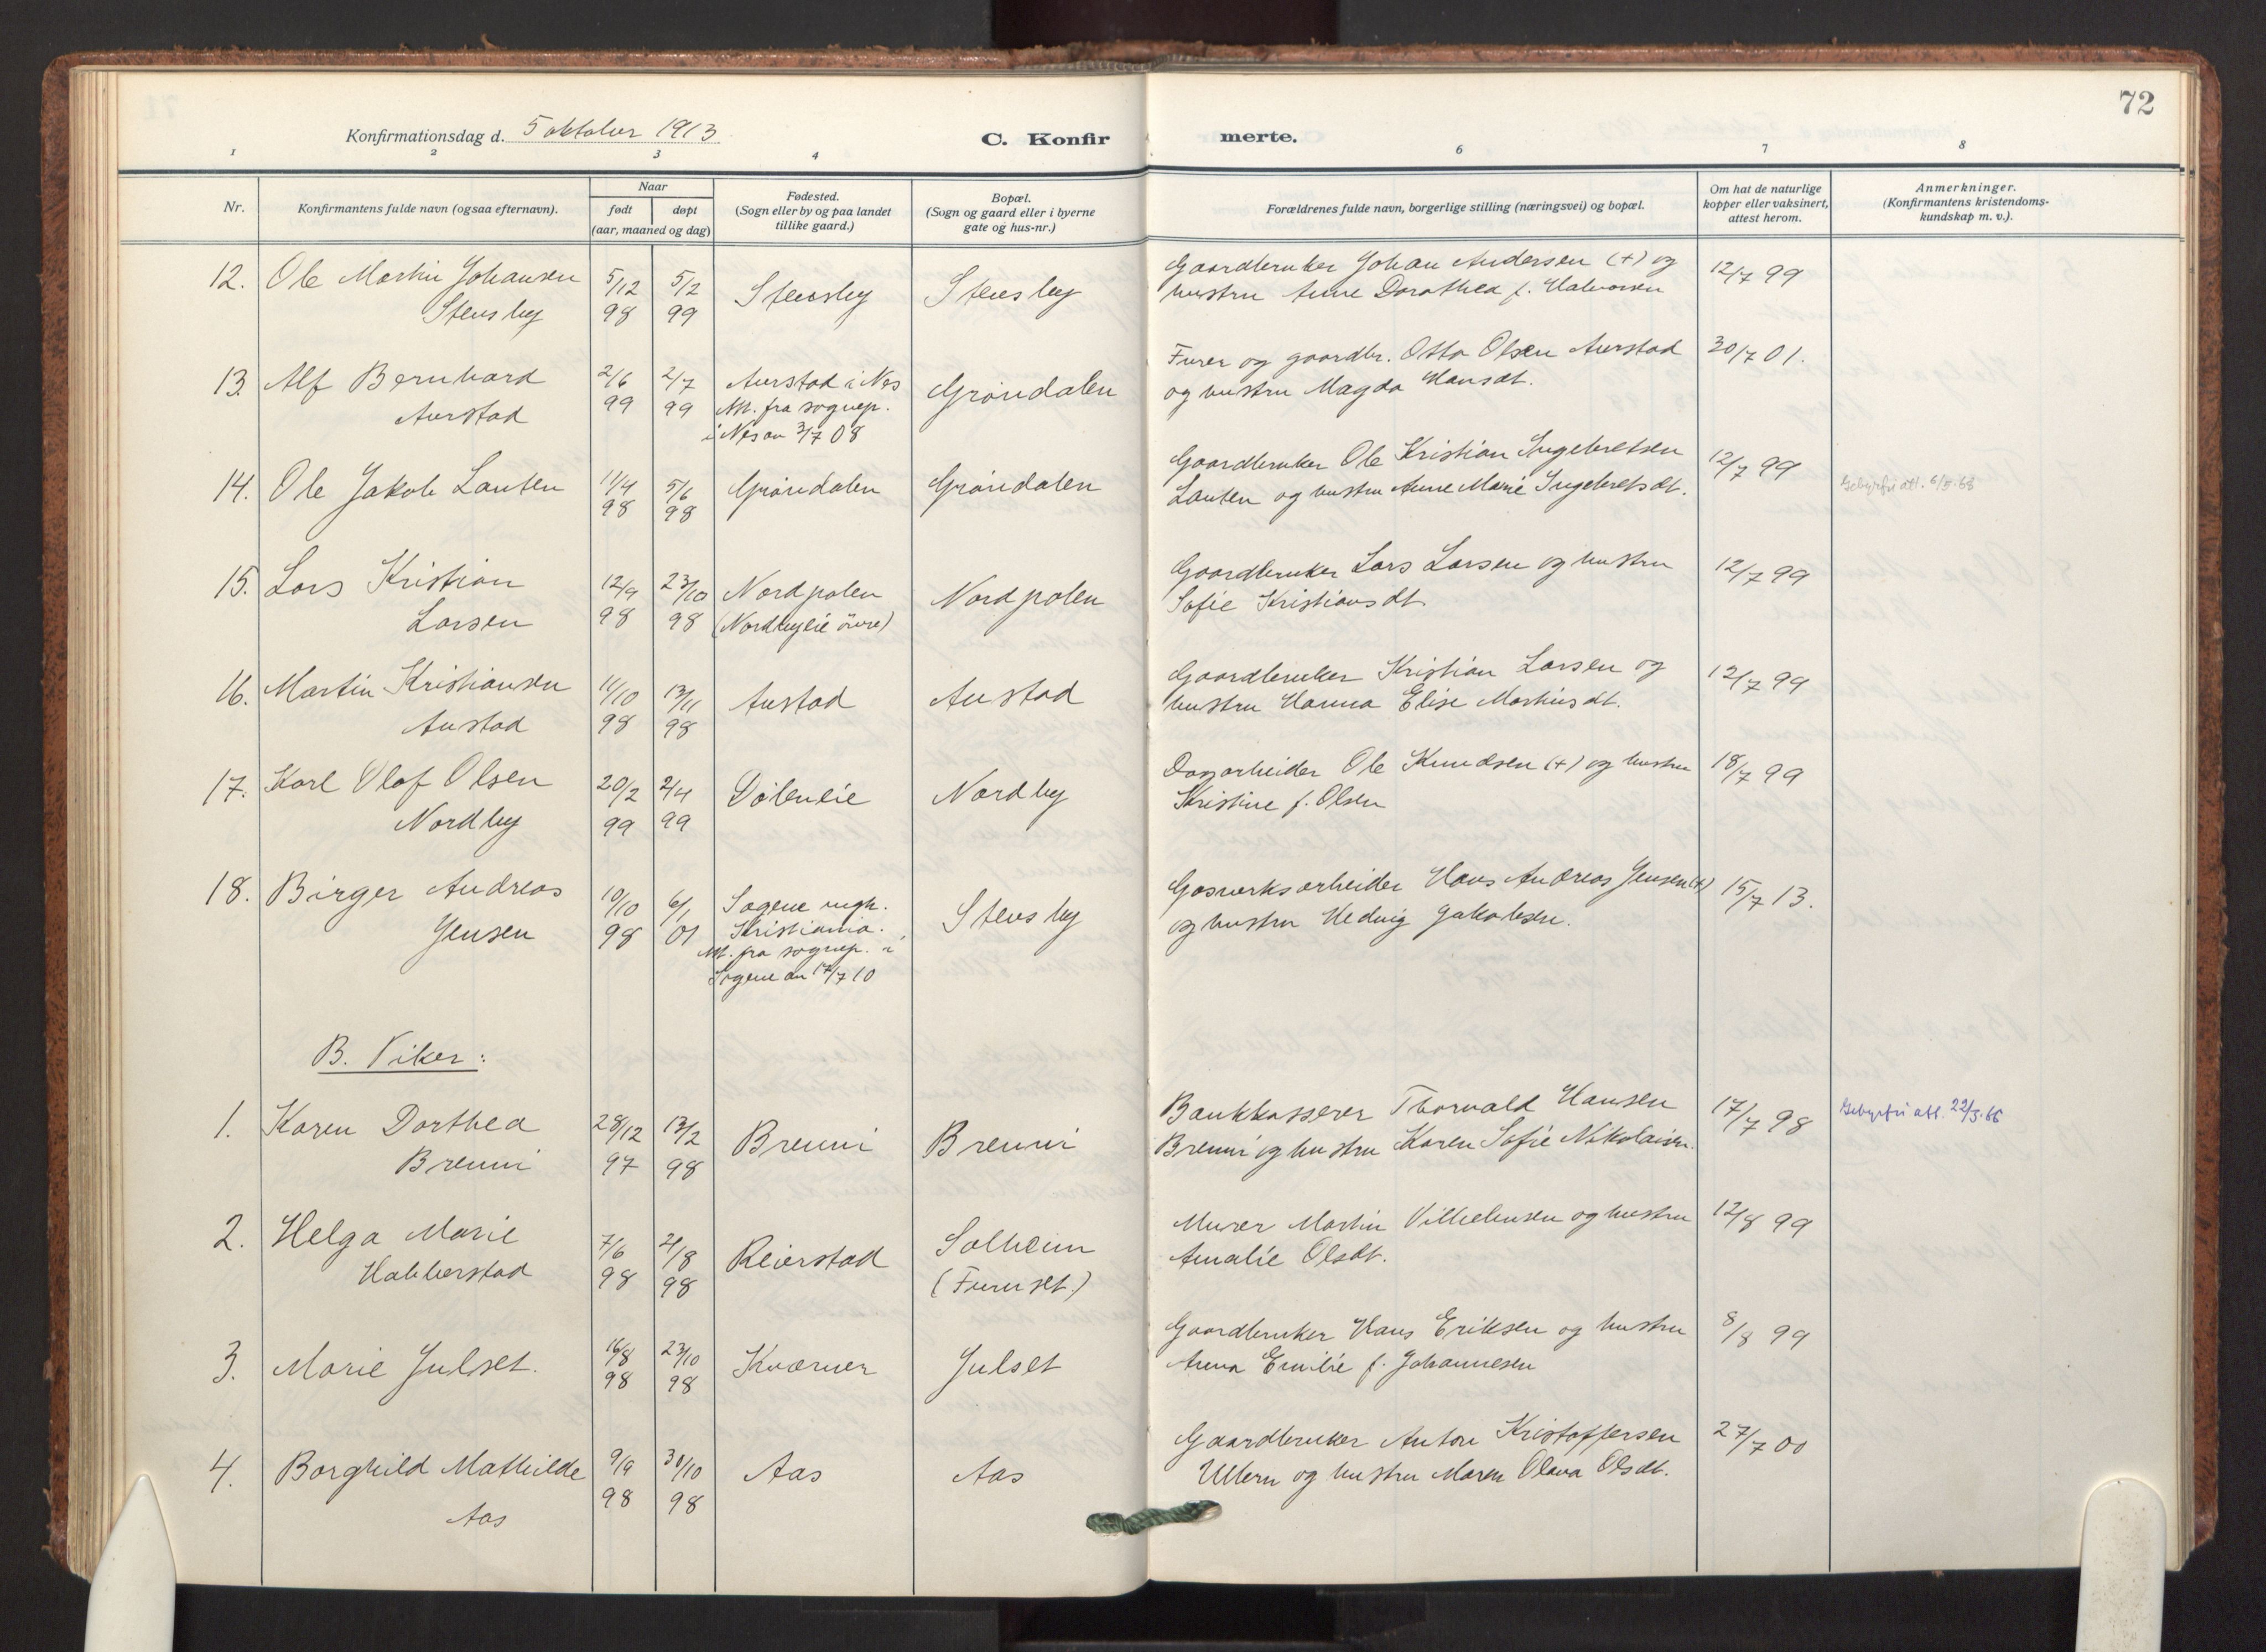 72
Konfirmationsdag d. 5 oktober 1913
C. Konfirmerte.
1 2 3 4 6 7 8
Nr.
Konfirmantens fulde navn (ogsaa efternavn).
Naar
født døpt
(aar, maaned og dag)
Fødested.
(Sogn eller by og paa landet
tillike gaard.)
Bopæl.
(Sogn og gaard eller i byerne
gate og hus-nr.)
Forældrenes fulde navn, borgerlige stilling (næringsvei) og bopæl.
Om hat de naturlige
kopper eller vaksinert,
attest herom.
Anmerkninger.
(Konfirmantens kristendoms-
kundskap m. v.).
12. Ole Martin Johansen 5/12 5/2 Stensby Stensby Gaardbruker Johan Andersen (+) og 12/7 99
Stensby 98 99 hustru Anne Dorathea f. Halvorsen
13. Alf Bernhard 2/6 2/7 Aurstad i Nes Grøndalen Furer og gaardbr. Otto Olsen Aurstad 30/7 01.
Aurstad 99 99 Att. fra sognep. og hustru Magda Hansdt.
i Nes av 3/7 08
14. Ole Jakob Lauten 11/4 5/6 Grøndalen Grøndalen Gaardbruker Ole Kristian Ingebretsen 12/7 99
98 98 Lauten og hustru Anne Marie Ingebretsdt. Gebyrfri att. 6/5.68
15. Lars Kristian 12/9 23/10 Nordpolen Nordpolen Gaardbruker Lars Larsen og hustru 12/7 99
Larsen 98 98 (Nordbyeie øvre) Sofie Kristiansdt.
16. Martin Kristiansen 11/10 13/11 Austad Austad Gaardbruker Kristian Larsen og 12/7 99
Austad 98 98 hustru Hanna Elise Martinsdt.
17. Karl Olaf Olsen 20/2 2/4 Døleneie Nordby Dagarbeider Ole Knudsen (+) og hustru 18/7 99
Nordby 99 99 Kristine f. Olsen
18. Birger Andreas 10/10 6/1 Sagene mgh. Stensby Gasverksarbeider Hans Andreas Jensen (+) 15/7 13.
Jensen 98 01 Kristiania. og hustru Hedvig Jakobsen.
Att. fra sognep. i
Sagene av 17/7 10
B. Piker:
1. Karen Dorthea 28/12 13/2 Brenni Brenni Bankkasserer Thorvald Hansen 17/7 98 Gebyrfri att. 22/3.66
Brenni 97 98 Brenni og hustru Karen Sofie Nikolaisen.
2. Helga Marie 7/6 21/8 Reierstad Solheim Murer Martin Vilhelmsen og hustru 12/8 99
Habberstad 98 98 (Furuset.) Amalie Olsdt.
3. Marie Julset. 16/8 23/10 Kværner Julset Gaardbruker Hans Eriksen og hustru 8/8 99
98 98 Anna Emilie f. Johannesen
4. Borghild Mathilde 9/9 30/10 Aas Aas Gaardbruker Anton Kristoffersen 27/7 00
Aas 98 98 Ullern og hustru Maren Olava Olsdt.